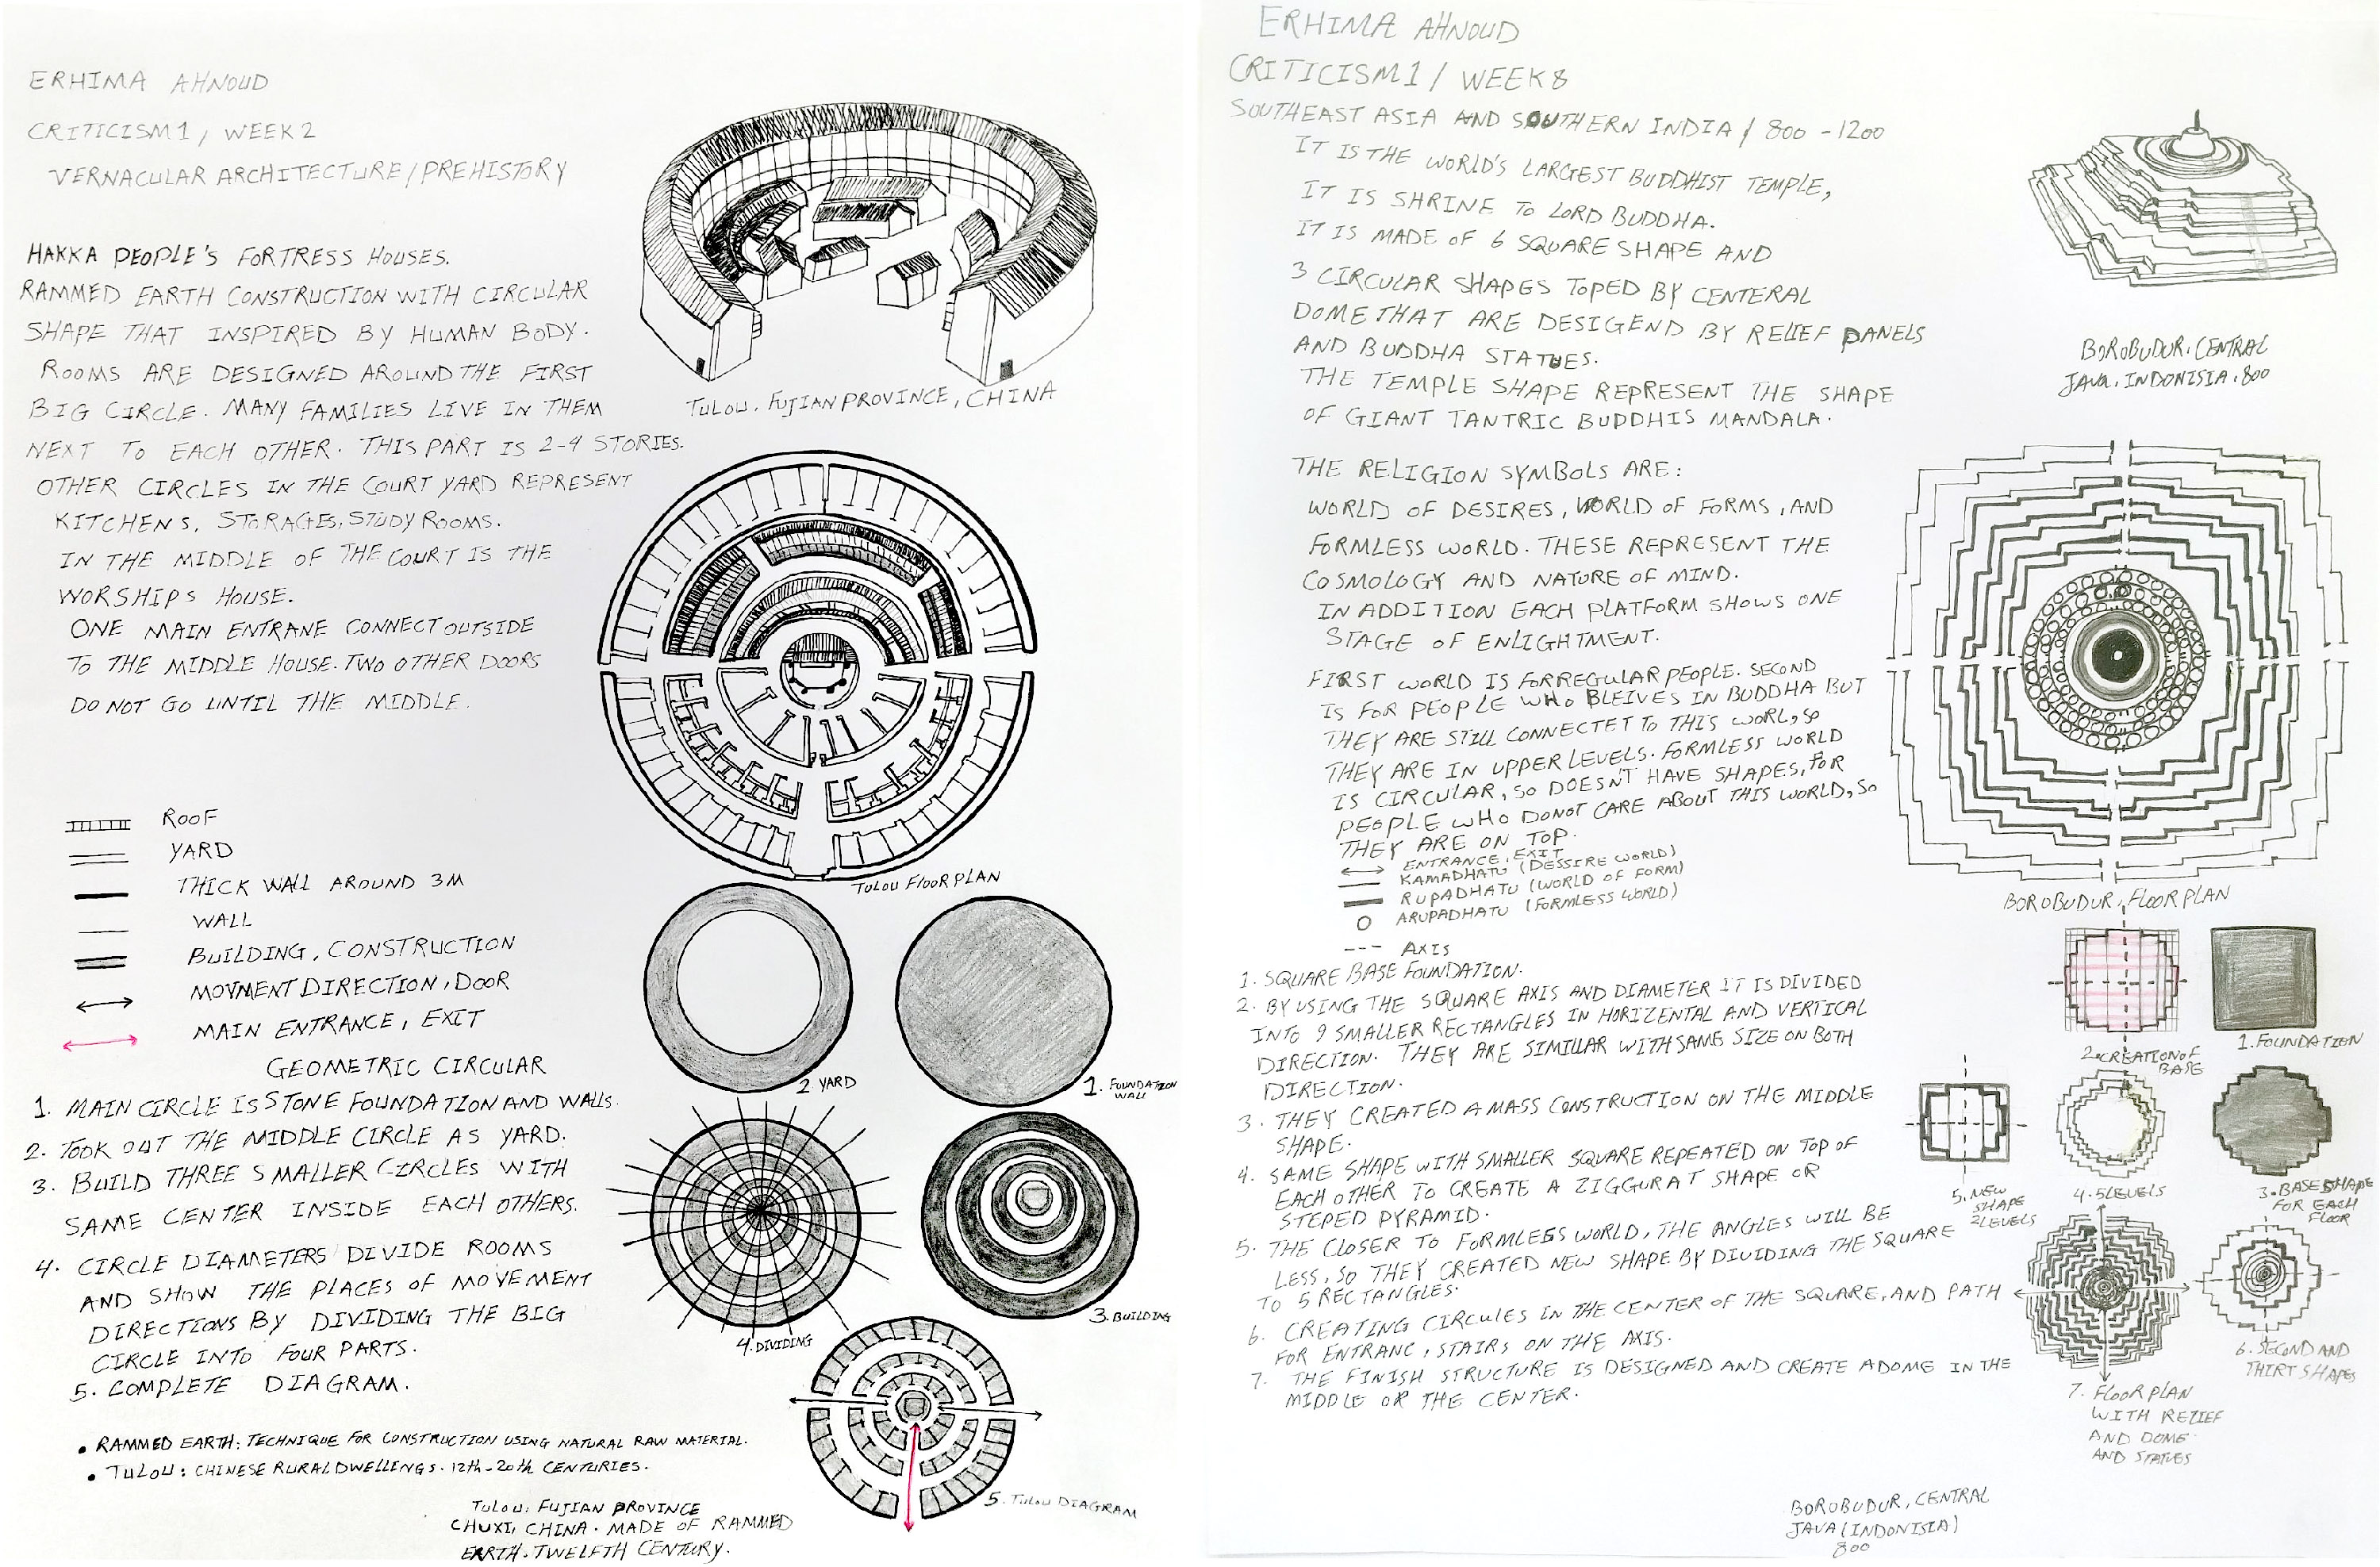 ERHIMA AHNOUD
CRITICISM1, WEEK 2
VERNACULAR ARCHITECTURE/PREHISTORY
HAKKA PEOPLE'S FORTRESS HOUSES.
RAMMED EARTH CONSTRUCTION WITH CIRCULAR
SHAPE THAT INSPIRED BY HUMAN BODY.
ROOMS ARE DESIGNED AROUND THE FIRST
BIG CIRCLE. MANY FAMILIES LIVE IN THEM
NEXT TO EACH OTHER. THIS PART IS 2-4 STORIES.
OTHER CIRCLES IN THE COURT YARD REPRESENT
KITCHENS, STORAGES, STUDY ROOMS.
IN THE MIDDLE OF THE COURT IS THE
WORSHIPS HOUSE.
ONE MAIN ENTRANE CONNECT OUTSIDE
TO THE MIDDLE HOUSE. TWO OTHER DOORS
DO NOT GO UNTIL THE MIDDLE.
TULOU, FUJIAN PROVINCE, CHINA
TULOU FLOOR PLAN
ROOF
YARD
THICK WALL AROUND 3M
WALL
BUILDING, CONSTRUCTION
MOVMENT DIRECTION, DOOR
MAIN ENTRANCE, EXIT
GEOMETRIC CIRCULAR
1. MAIN CIRCLE IS STONE FOUNDATION AND WALLS.
2. TOOK OUT THE MIDDLE CIRCLE AS YARD.
3. BUILD THREE SMALLER CIRCLES WITH
SAME CENTER INSIDE EACH OTHERS.
4. CIRCLE DIAMETERS DIVIDE ROOMS
AND SHOW THE PLACES OF MOVEMENT
DIRECTIONS BY DIVIDING THE BIG
CIRCLE INTO FOUR PARTS.
5. COMPLETE DIAGRAM.
2 YARD
1. FOUNDATION
WALL
4. DIVIDING
3. BUILDING
5. TULOU DIAGRAM
• RAMMED EARTH: TECHNIQUE FOR CONSTRUCTION USING NATURAL RAW MATERIAL.
• TULOU: CHINESE RURAL DWELLINGS. 12th-20th CENTURIES.
TULOU, FUJIAN PROVINCE
CHUXI, CHINA. MADE OF RAMMED
EARTH. TWELFTH CENTURY.
ERHIMA AHNOUD
CRITICISM1/ WEEK 8
SOUTHEAST ASIA AND SOUTHERN INDIA / 800 - 1200
IT IS THE WORLD'S LARGEST BUDDHIST TEMPLE,
IT IS SHRINE TO LORD BUDDHA.
IT IS MADE OF 6 SQUARE SHAPE AND
3 CIRCULAR SHAPES TOPED BY CENTERAL
DOME THAT ARE DESIGEND BY RELIEF PANELS
AND BUDDHA STATUES.
THE TEMPLE SHAPE REPRESENT THE SHAPE
OF GIANT TANTRIC BUDDHIS MANDALA.
THE RELIGION SYMBOLS ARE:
WORLD OF DESIRES, WORLD OF FORMS, AND
FORMLESS WORLD. THESE REPRESENT THE
COSMOLOGY AND NATURE OF MIND.
IN ADDITION EACH PLATFORM SHOWS ONE
STAGE OF ENLIGHTMENT.
FIRST WORLD IS FOR REGULAR PEOPLE. SECOND
IS FOR PEOPLE WHO BLEIVES IN BUDDHA BUT
THEY ARE STILL CONNECTET TO THIS WORL, SO
THEY ARE IN UPPER LEVELS. FORMLESS WORLD
IS CIRCULAR, SO DOESN'T HAVE SHAPES, FOR
PEOPLE WHO DONOT CARE ABOUT THIS WORLD, SO
THEY ARE ON TOP.
ENTRANCE, EXIT
KAMADHATU (DESSIRE WORLD)
RUPADHATU (WORLD OF FORM)
ARUPADHATU (FORMLESS WORLD)
AXIS
BOROBUDUR, CENTRAL
JAVA, INDONISIA, 800
BOROBUDUR, FLOOR PLAN
1. SQUARE BASE FOUNDATION.
2. BY USING THE SQUARE AXIS AND DIAMETER IT IS DIVIDED
INTO 9 SMALLER RECTANGLES IN HORIZENTAL AND VERTICAL
DIRECTION. THEY ARE SIMILLAR WITH SAME SIZE ON BOTH
DIRECTION.
3. THEY CREATED A MASS CONSTRUCTION ON THE MIDDLE
SHAPE.
4. SAME SHAPE WITH SMALLER SQUARE REPEATED ON TOP OF
EACH OTHER TO CREATE A ZIGGURAT SHAPE OR
STEPED PYRAMID.
5. THE CLOSER TO FORMLESS WORLD, THE ANGLES WILL BE
LESS, SO THEY CREATED NEW SHAPE BY DIVIDING THE SQUARE
TO 5 RECTANGLES.
6. CREATING CIRCULES IN THE CENTER OF THE SQUARE, AND PATH
FOR ENTRANC, STAIRS ON THE AXIS.
7. THE FINISH STRUCTURE IS DESIGNED AND CREATE A DOME IN THE
MIDDLE OR THE CENTER.
2. CREATION OF
BASE
1. FOUNDATION
5. NEW
SHAPE
2 LEVELS
4. 5 LEVELS
3. BASE SHAPE
FOR EACH
FLOOR
6. SECOND AND
THIRT SHAPES
7. FLOOR PLAN
WITH RELIEF
AND DOME
AND STATUES
BOROBUDUR, CENTRAL
JAVA (INDONISIA)
800